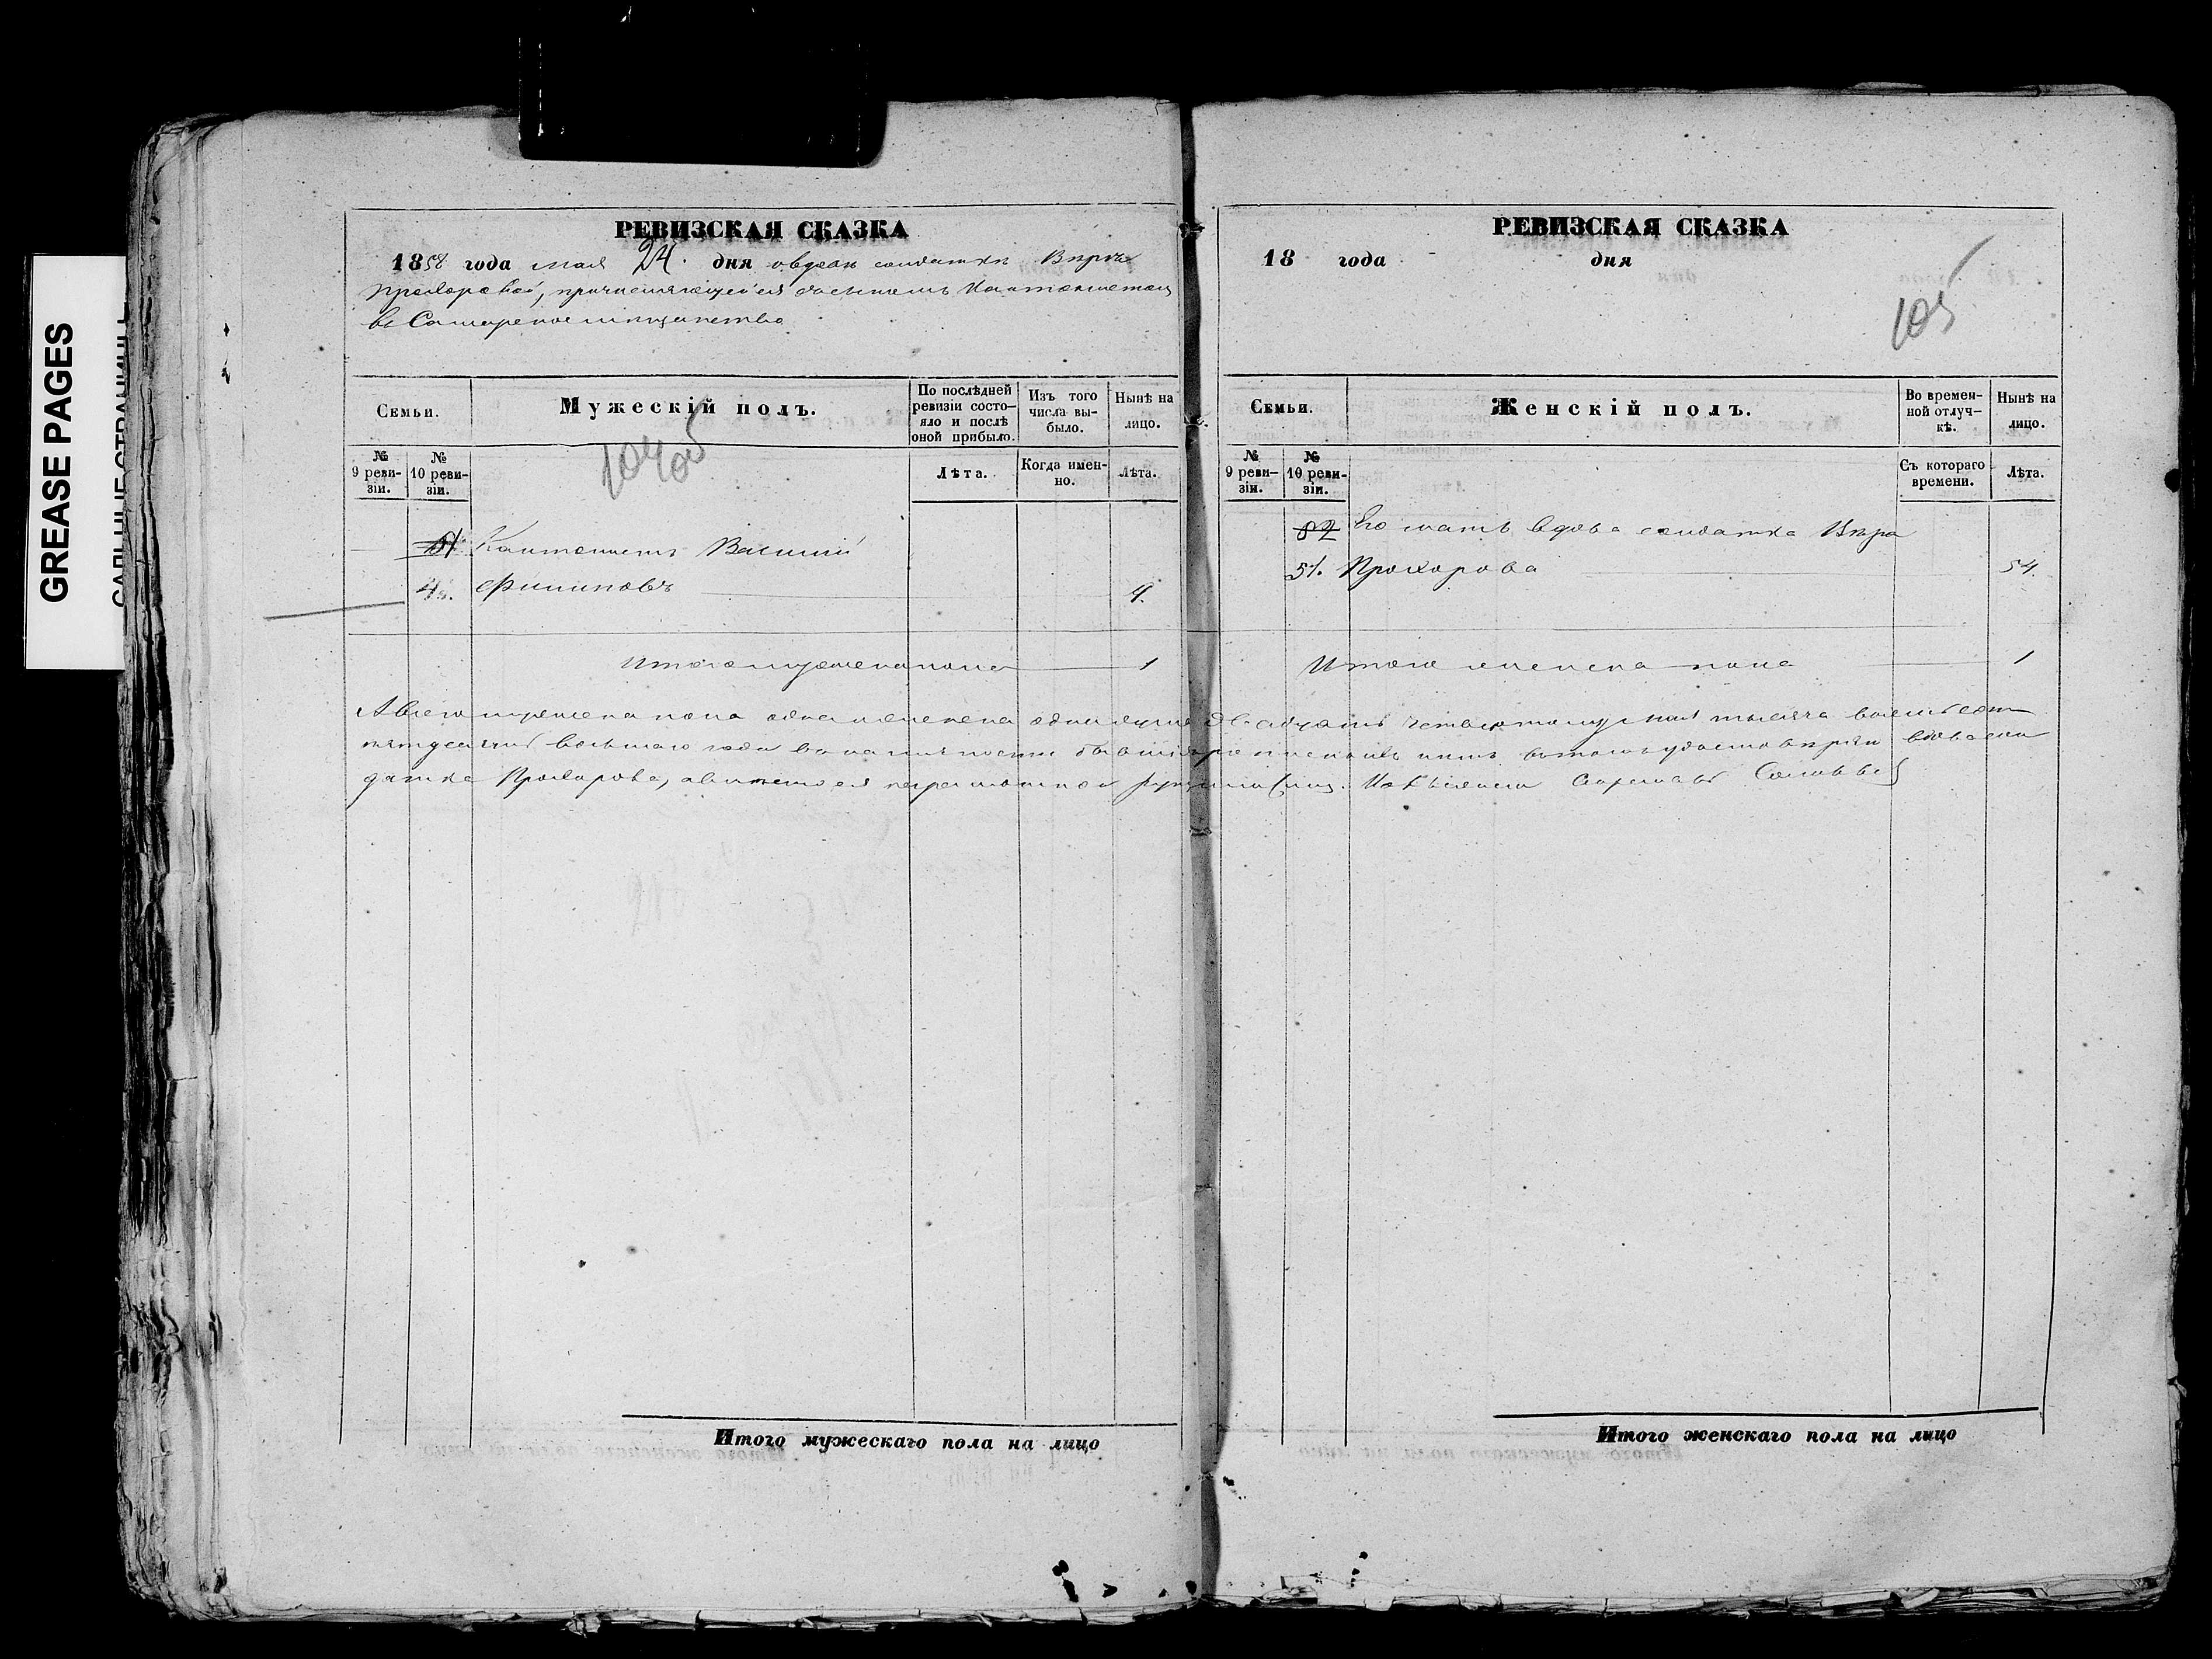 GREASE PAGES
РЕВИЗСКАЯ СКАЗКА
1858 года мая 24. дня о вдовѣ солдаткѣ Вѣрѣ
Прохоровой, причисляющейся съ сыномъ Кантонистомъ
въ Самарское мѣщанство
Семьи.
Мужескій полъ.
По послѣдней ревизіи состояло и послѣ оной прибыло.
Изъ того числа выбыло.
Нынѣ на лицо.
№ 9 ревизіи.
№ 10 ревизіи.
Лѣта.
Когда именно.
Лѣта.
Кантонистъ Василій
45. Филиповъ 9.
Итого мужеска пола 1
РЕВИЗСКАЯ СКАЗКА
18 года дня
105
Семьи.
Женскій полъ.
Во временной отлучкѣ.
Нынѣ на лицо.
№ 9 ревизіи.
№ 10 ревизіи.
Съ котораго времени.
Лѣта.
82 Его мать вдова солдатка Вѣра
51. Прохорова 54.
Итого женска пола 1
А всего мужеска пола одна и женска одна душа двадцать четвертому мая тысяча восемьсотъ
пятьдесятъ восьмаго года въ наличности бывшихъ въ томъ удостовѣряю вдова сол
датка Прохорова, а вмѣсто ея неграмотной
Итого мужескаго пола на лицо
Итого женскаго пола на лицо